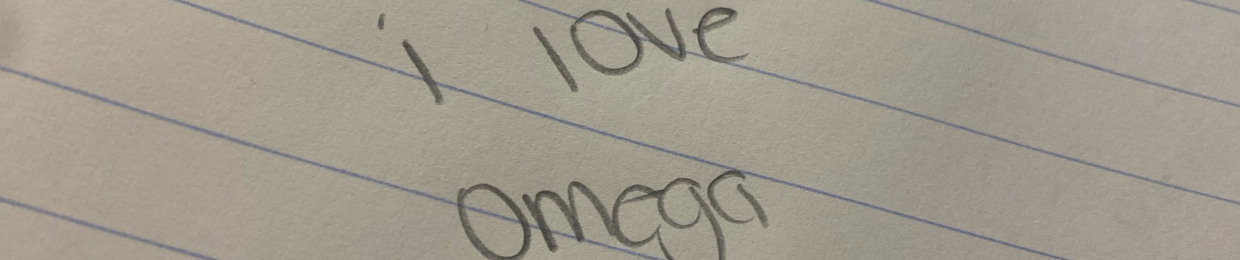 i love
omega